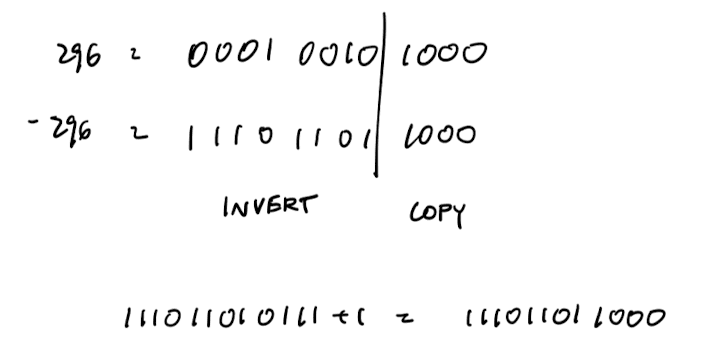 296 = 0001 0010 | 1000
-296 = 1110 1101 | 1000
INVERT COPY
111011010111 + 1 = 111011011000